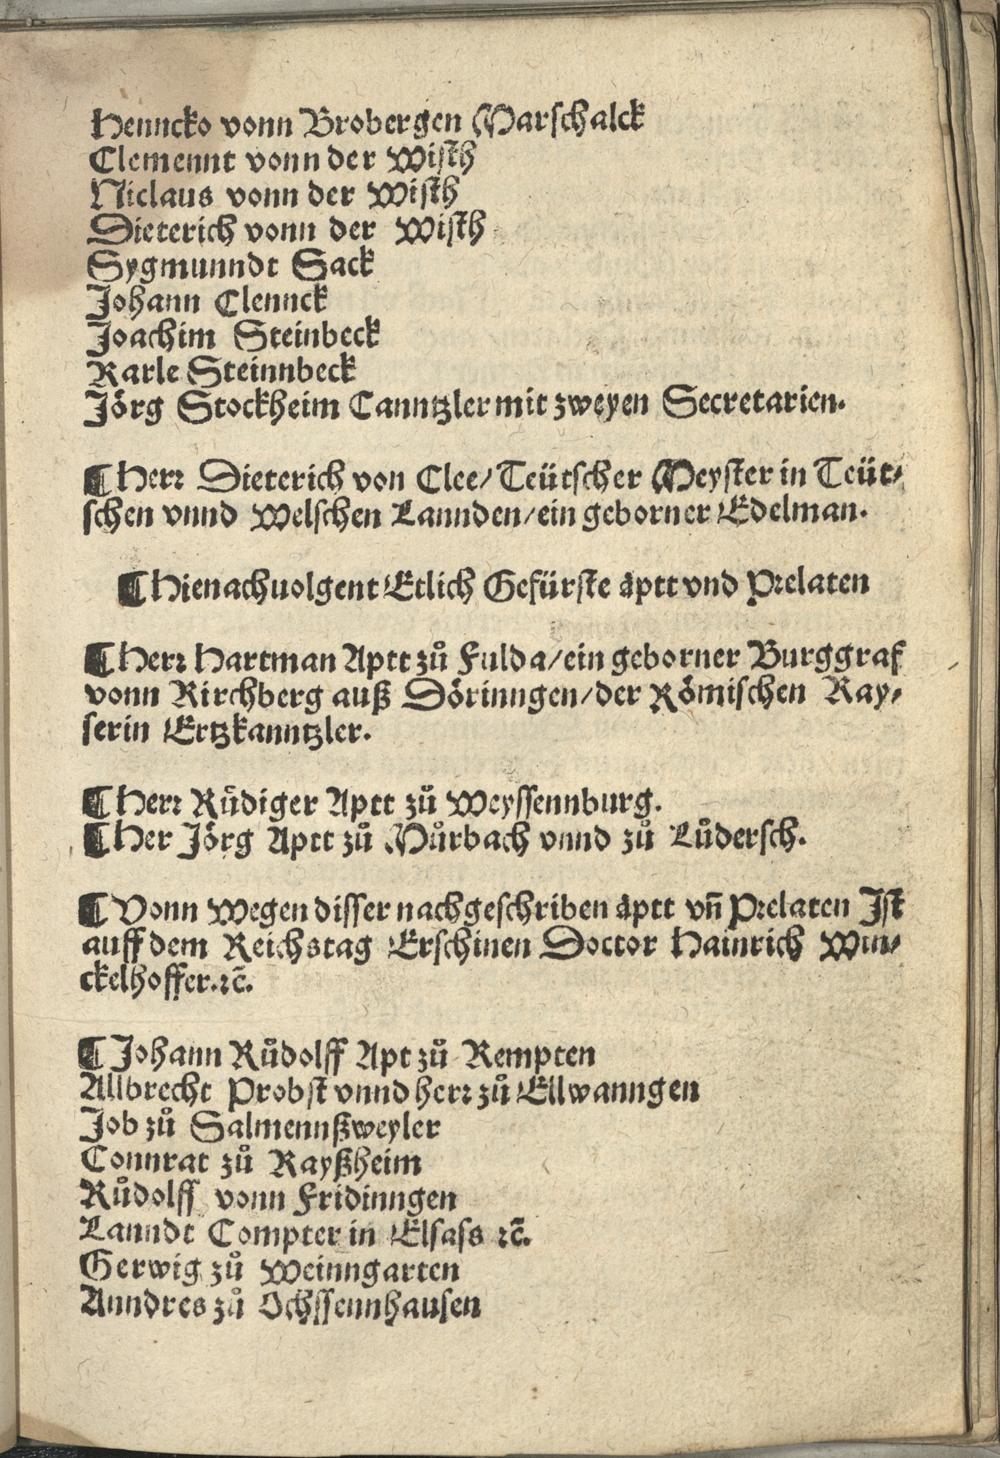 Henncko vonn Brobergen Marschalck
Clemennt vonn der Wisth
Niclaus vonn der Wisth
Dieterich vonn der Wisth
Sygmunndt Sack
Johann Clennck
Joachim Steinbeck
Karle Steinnbeck
Jörg Stockheim Canntzler mit zweyen Secretarien.
¶ Herr Dieterich von Clee/ Teütscher Meyster in Teüt⸗
schen vnnd Welschen Lannden/ ein geborner Edelman.
¶ Hienachuolgent Etlich Gefürste äptt vnd Prelaten
¶ Herr Hartman Aptt zů Fulda/ ein geborner Burggraf
vonn Kirchberg auß Dörinngen/ der Römischen Kay⸗
serin Ertzkanntzler.
¶ Herr Rüdiger Aptt zů Weyssennburg.
¶ Her Jörg Aptt zů Můrbach vnnd zů Lůdersch.
¶ Vonn Wegen disser nachgeschriben äptt vñ Prelaten Ist
auff dem Reichstag Erschinen Doctor Hainrich Win⸗
ckelhoffer.ꝛc̃.
¶ Johann Růdolff Apt zů Kempten
Allbrecht Probst vnnd herr zů Ellwanngen
Job zů Salmennßweyler
Connrat zů Kayßheim
Růdolff vonn Fridinngen
Lanndt Compter in Elsass ꝛc̃.
Gerwig zů Weinngarten
Anndres zů Ochssennhausen